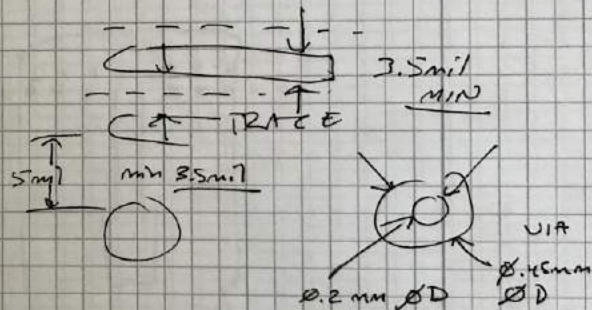 3.5mil
MIN
TRACE
5mil
min 3.5mil
VIA
Ø.45mm
ØD
Ø.2 mm ØD